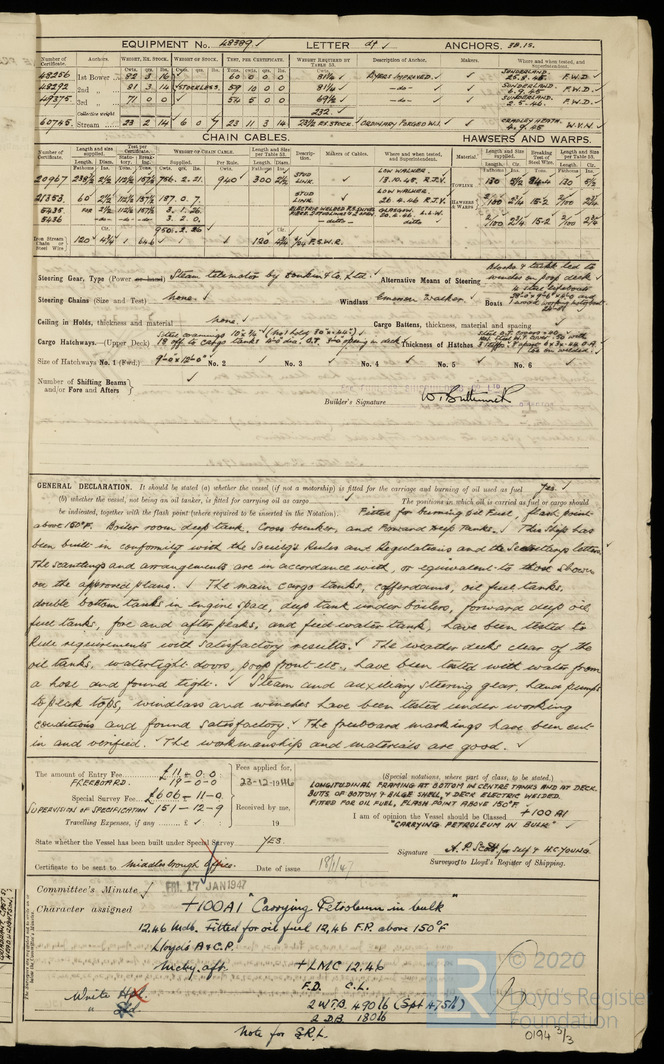 EQUIPMENT No. 48389 ✓ LETTER dt ✓ ANCHORS.
Number of Certificate. Anchors. WEIGHT, EX. STOCK. WEIGHT OF STOCK. TEST, PER CERTIFICATE. WEIGHT REQUIRED BY TABLE 53. Description of Anchor. Makers. Where and when tested, and Superintendent.
48256 1st Bower 82 3 16 60 0 0 0 81¼ BYERS IMPROVED. SUNDERLAND. 25.8.45 F.W.D.
48292 2nd „ 81 3 14 STOCKLESS. 59 10 0 0 81¼ —do— SUNDERLAND. 6.9.45 F.W.D.
49375 3rd „ 71 0 0 54 5 0 0 69¼ —do— SUNDERLAND. 2.5.46. F.W.D.
Collective weight 232
60745 Stream 23 2 14 6 0 7 23 11 3 14 23½ EX STOCK. ORDINARY FORGED W.I. CRADLEY HEATH. 4.9.45 W.V.N
CHAIN CABLES. HAWSERS AND WARPS.
Number of Certificate. Length and size supplied. Test per Certificate. WEIGHT OF CHAIN CABLE. Length and size per Table 53. Description. Makers of Cables. Where and when tested, and Superintendent. Material. Length and size supplied. Breaking Test of Steel Wire. Length and size per Table 53.
20967 756.2.21. 940 300 STUD LINK. LOW WALKER. 18.10.45. R.J.V. TOWLINE 130 5½ 130 5½
21353 60 187.0.7. STUD LINK. LOW WALKER. 26.4.46 R.J.V. HAWSERS & WARPS 2/100 2¼ 15.2 2/100 2¼
5435 3.1.26.
5436 —do— 3.2.0. —ditto— ditto 2/100 2¼ 15.2 2/100 2¼
Iron Stream Chain or Steel Wire 120 4¾ 120 F.S.W.R.
Steering Gear, Type (Power or hand) Steam telemotor by Donkin & Co. Ltd. Alternative Means of Steering Blocks & tackle led to winches on poop deck
Steering Chains (Size and Test) None. Windlass Emerson Walker. Boats
Ceiling in Holds, thickness and material none. Cargo Battens, thickness, material and spacing
Cargo Hatchways.—(Upper Deck) Thickness of Hatches
Size of Hatchways No. 1 (Fwd.) 9'-0" x 12'-0" No. 2 No. 3 No. 4 No. 5 No. 6
Number of Shifting Beams and/or Fore and Afters
Builder's Signature
GENERAL DECLARATION. It should be stated (a) whether the vessel (if not a motorship) is fitted for the carriage and burning of oil used as fuel yes. ✓
(b) whether the vessel, not being an oil tanker, is fitted for carrying oil as cargo ✓ The positions in which oil is carried as fuel or cargo should
be indicated, together with the flash point (where required to be inserted in the Notation). Fitted for burning Oil Fuel, flash point
above 150°F. Boiler room deep tank. Cross bunker, and Forward Deep Tanks. ✓ This ship has
been built in conformity with the Society's Rules and Regulations and the Secretarys letters
The scantlings and arrangements are in accordance with, or equivalent to those shown
on the approved plans. ✓ The main cargo tanks, cofferdams, oil fuel tanks,
double bottom tanks in engine space, deep tank under boilers, forward deep oil
fuel tanks, fore and after peaks, and feed water tank, have been tested to
Rule requirements with satisfactory results. ✓ The weather decks clear of the
oil tanks, watertight doors, poop front etc., have been tested with water from
a hose and found tight. ✓ Steam and auxiliary steering gear, hand pumps
to peak tops, windlass and winches have been tested under working
conditions and found satisfactory. The freeboard markings have been cut
in and verified. ✓ The workmanship and materials are good. ✓
The amount of Entry Fee £11-0-0 Fees applied for,
FREEBOARD. 19-0-0 23-12-1946
Special Survey Fee £606-11-0 Received by me,
SUPERVISION OF SPECIFICATION 151-12-9
Travelling Expenses, if any £ ✓ 19
(Special notations, where part of class, to be stated.)
LONGITUDINAL FRAMING AT BOTTOM IN CENTRE TANKS AND AT DECK.
BUTTS OF BOTTOM & BILGE SHELL, & DECK ELECTRIC WELDED.
FITTED FOR OIL FUEL, FLASH POINT ABOVE 150°F
I am of opinion the Vessel should be Classed +100A1
"CARRYING PETROLEUM IN BULK" ✓
State whether the Vessel has been built under Special Survey. YES
Signature A. P. Scott for Self & H.C. YOUNG.
Surveyor to Lloyd's Register of Shipping.
Certificate to be sent to Middlesbrough Office. Date of issue 18/1/47
Committee's Minute FRI. 17 JAN 1947
Character assigned +100A1 "Carrying Petroleum in bulk"
12.46 Mdb. Fitted for oil fuel 12.46 F.P. above 150°F
Lloyd's A & C.P.
Mchy. aft. +LMC 12.46
F.D. C.L.
2 W.T.B. 490 lb (Spt 475 lb)
2 D.B. 180 lb
Write
Note for S.R.L.
0194 3/3
LR
© 2020
Lloyd's Register
Foundation